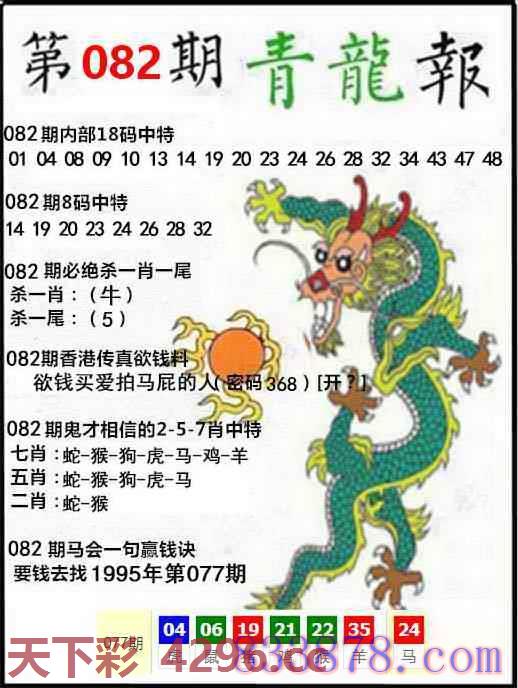 第082期 青龍報
082期内部18码中特
01 04 08 09 10 13 14 19 20 23 24 26 28 32 34 43 47 48
082期8码中特
14 19 20 23 24 26 28 32
082 期必绝杀一肖一尾
杀一肖：（牛）
杀一尾：（5）
082期香港传真欲钱料
欲钱买爱拍马屁的人(密码368）[开？]
082期鬼才相信的2-5-7肖中特
七肖：蛇-猴-狗-虎-马-鸡-羊
五肖：蛇-猴-狗-虎-马
二肖：蛇-猴
082 期马会一句赢钱诀
要钱去找1995年第077期
077期 04 06 19 21 22 35 24
虎 鼠 猪 鸡 猴 羊 马
天下彩 4296.cc